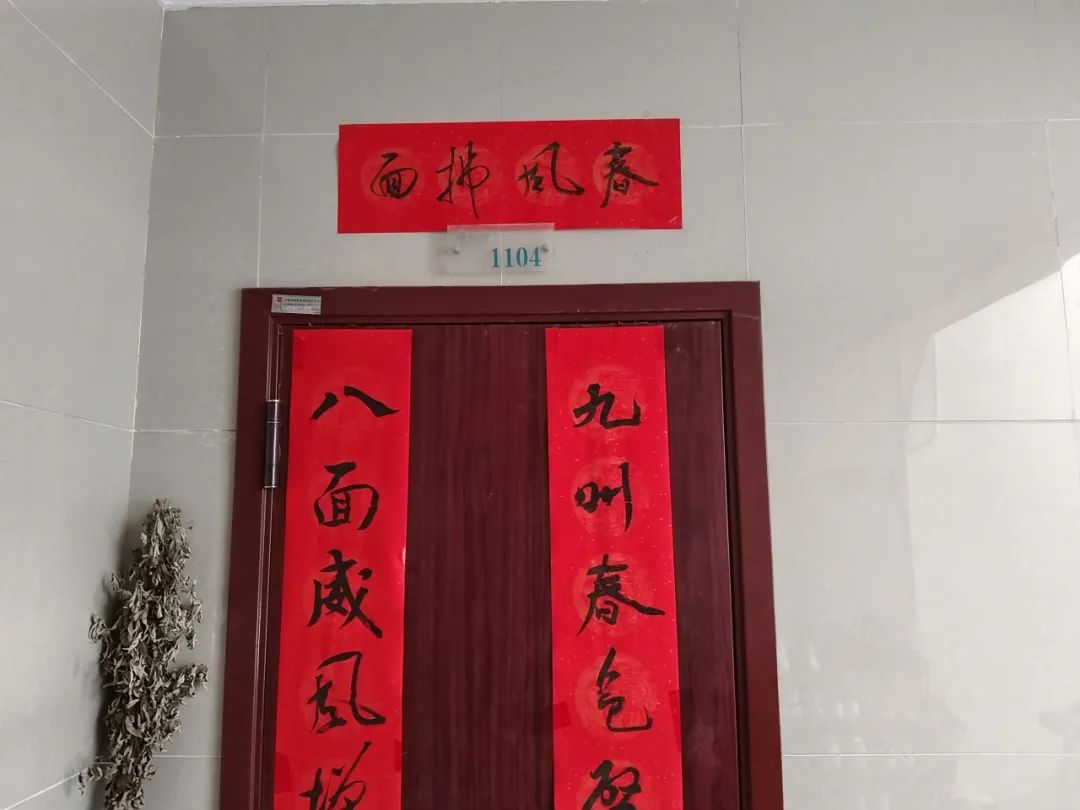 春風拂面
1104
九州春色
八面威風增